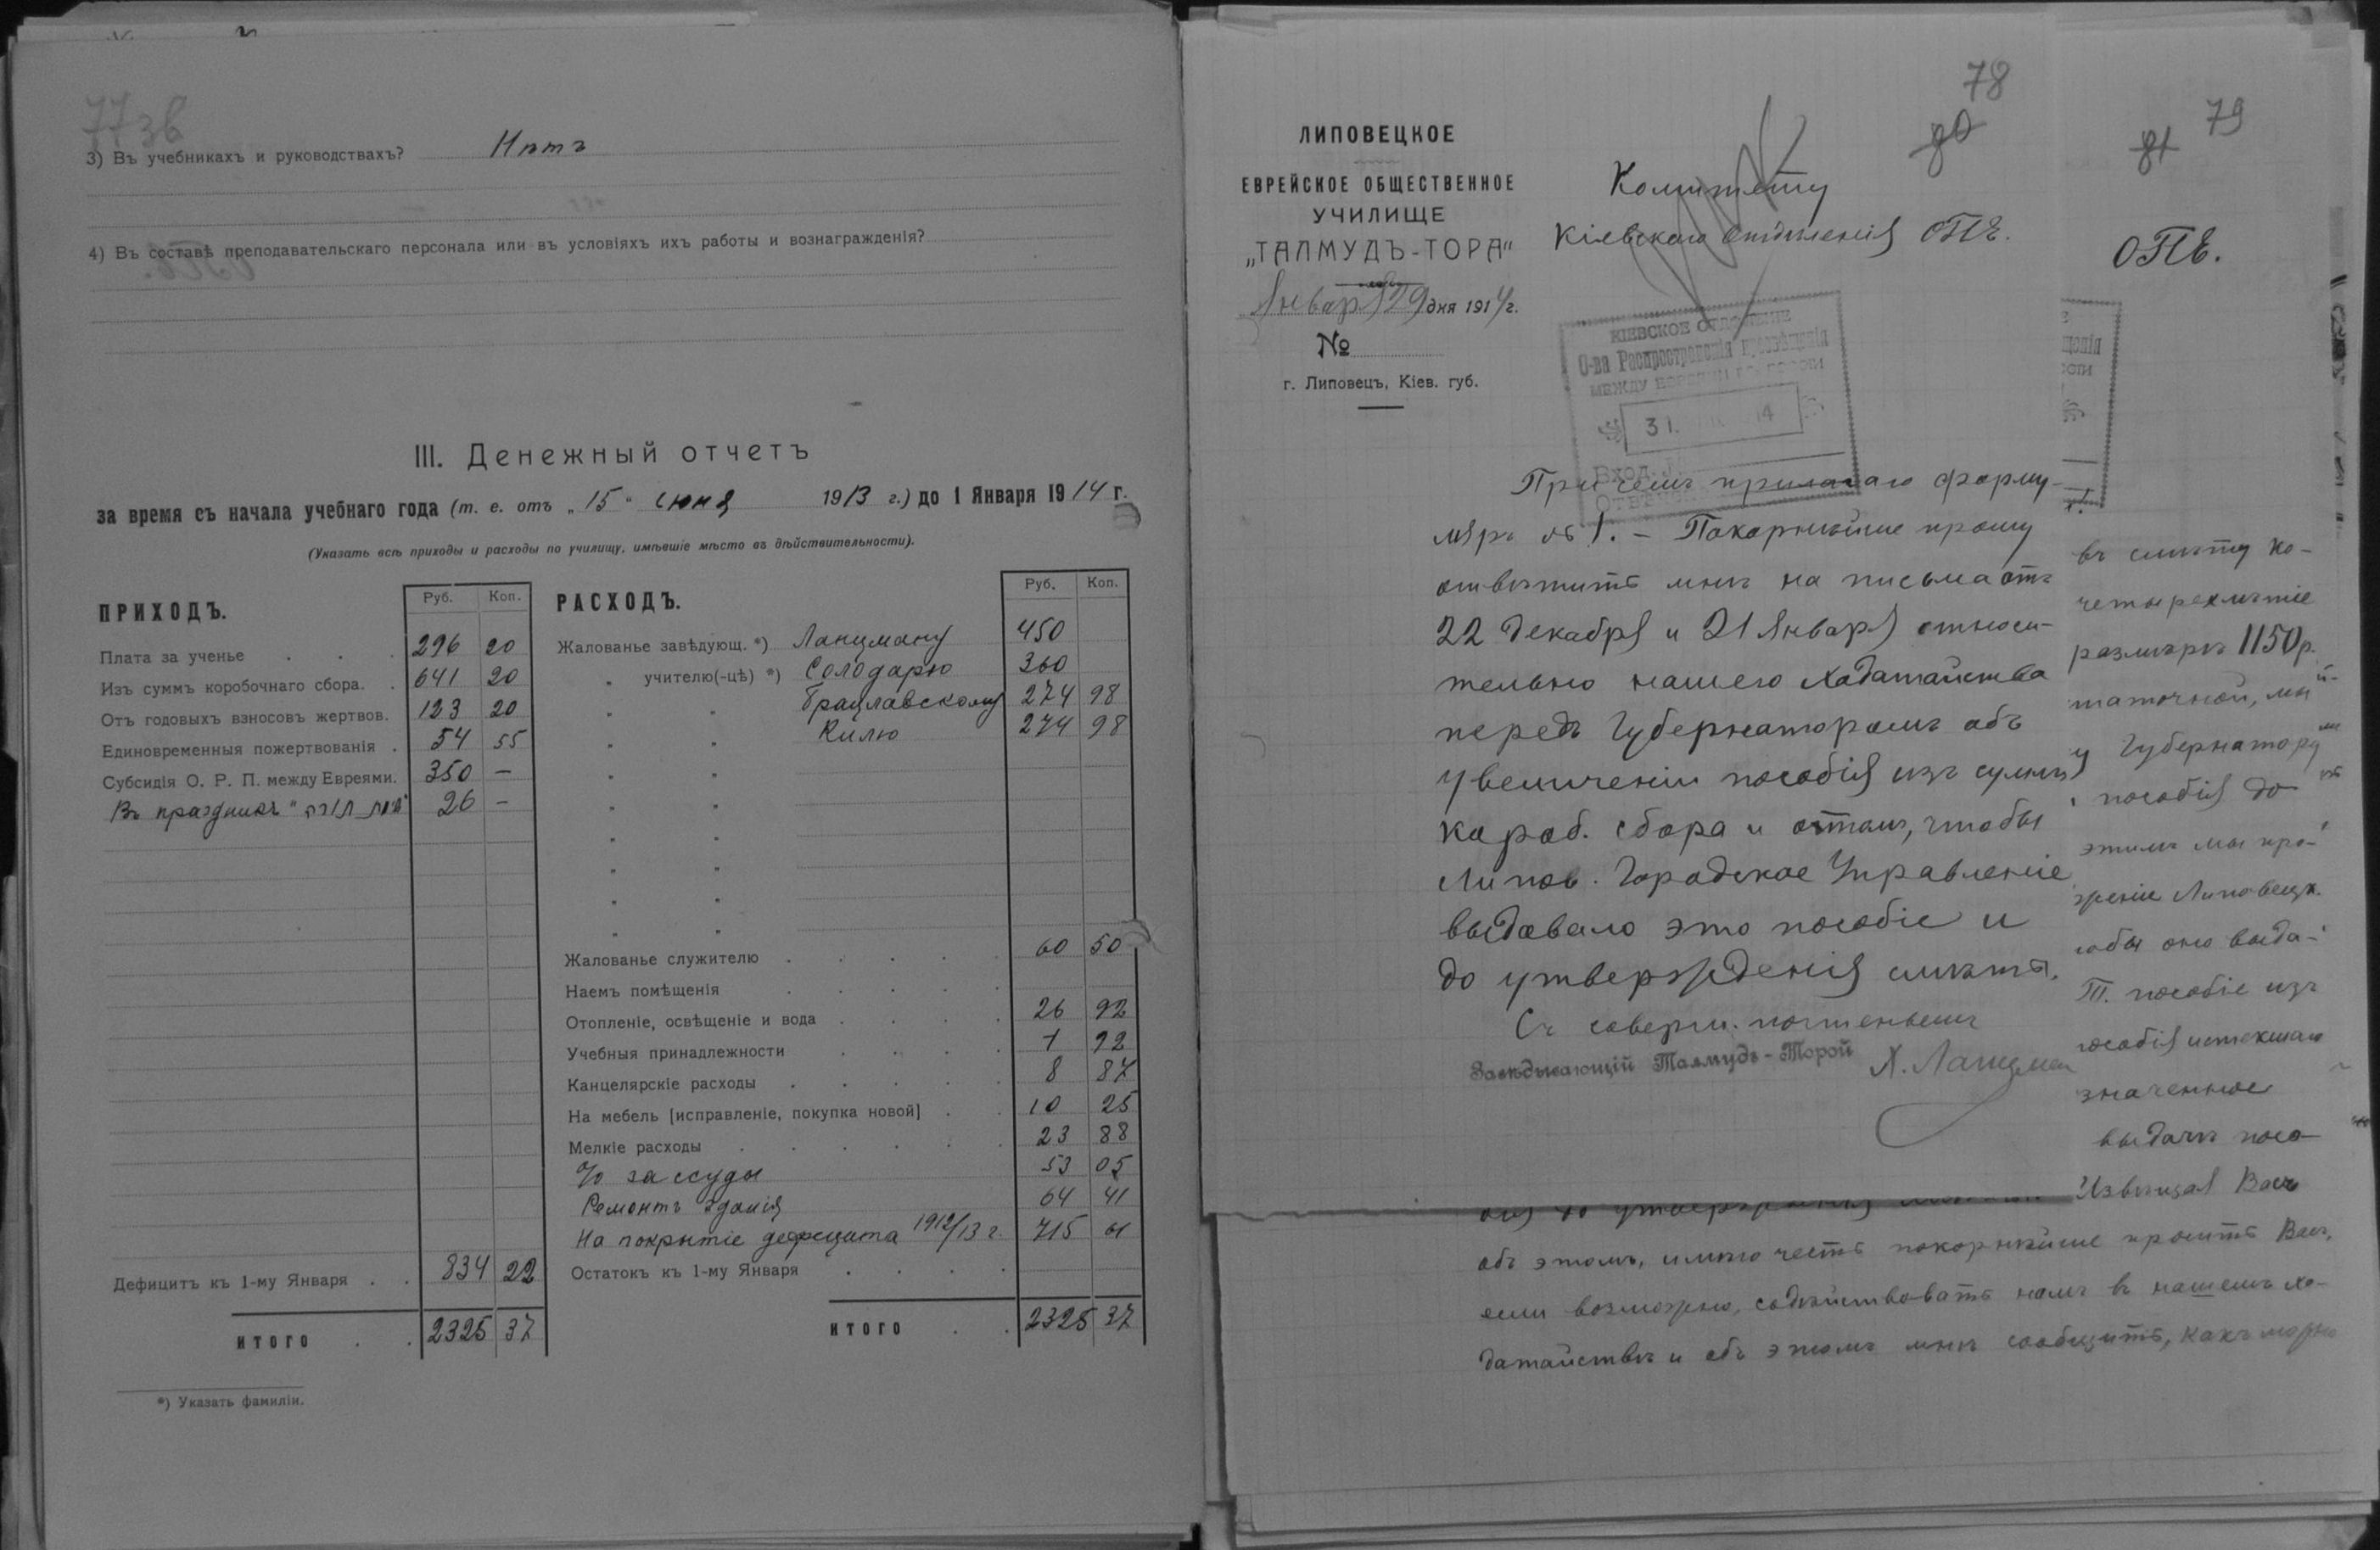 77 зв
3) Въ учебникахъ и руководствахъ? Нѣтъ
4) Въ составѣ преподавательскаго персонала или въ условіяхъ ихъ работы и вознагражденія?
III. Денежный отчетъ
за время съ начала учебнаго года (т. е. отъ „15“ іюня 1913 г.) до 1 Января 1914 г.
(Указать всѣ приходы и расходы по училищу, имѣвшіе мѣсто въ дѣйствительности).
ПРИХОДЪ. Руб. Коп.
Плата за ученье 296 20
Изъ суммъ коробочнаго сбора. 641 20
Отъ годовыхъ взносовъ жертвов. 123 20
Единовременныя пожертвованія 54 55
Субсидія О. Р. П. между Евреями. 350 —
Въ праздникъ 26 —
Дефицитъ къ 1-му Января 834 22
ИТОГО 2325 37
РАСХОДЪ. Руб. Коп.
Жалованье завѣдующ. *) Ланцману 450
„ учителю(-цѣ) *) Солодарю 360
„ „ Брацлавскому 274 98
„ „ Килю 274 98
Жалованье служителю 60 50
Наемъ помѣщенія
Отопленіе, освѣщеніе и вода 26 92
Учебныя принадлежности 1 92
Канцелярскіе расходы 8 87
На мебель [исправленіе, покупка новой] 10 25
Мелкіе расходы 23 88
% за ссуды 53 05
Ремонтъ зданія 64 41
На покрытіе дефецита 1912/13 г. 715 61
Остатокъ къ 1-му Января
ИТОГО 2325 37
*) Указать фамиліи.
78
80
ЛИПОВЕЦКОЕ
ЕВРЕЙСКОЕ ОБЩЕСТВЕННОЕ
УЧИЛИЩЕ
„ТАЛМУДЪ-ТОРА“
Января 29 дня 1914 г.
№
г. Липовецъ, Кіев. губ.
Комитету
Кіевскаго Отдѣленія ОПЕ.
КІЕВСКОЕ ОТДѢЛЕНІЕ
О-ва Распространенія просвѣщенія
МЕЖДУ ЕВРЕЯМИ ВЪ РОССІИ
31. 14
Вход.
При семъ прилагаю форму-
ляръ № 1. – Покорнѣйше прошу
отвѣтить мнѣ на письма отъ
22 Декабря и 21 Января относи-
тельно нашего ходатайства
передъ Губернаторомъ объ
увеличеніи пособія изъ суммъ
короб. сбора и о томъ, чтобы
Липов. Городское Управленіе
выдавало это пособіе и
до утвержденія смѣты.
Съ соверш. почтеніемъ
Завѣдывающій Талмудъ-Торой Х. Ланцман
79
81
ОПЕ.
въ смѣту ко-
четырехлѣтіе
размѣрѣ 1150 р.
таточной, мы
у Губернатору
пособія до
этимъ мы про-
Липовецк.
тобы оно выда-
Т. пособіе изъ
пособія истекшаго
значенное
выдачѣ посо-
Извѣщая Васъ
объ этомъ, имѣю честь покорнѣйше просить Васъ,
если возможно, содѣйствовать намъ въ нашемъ хо-
датайствѣ и объ этомъ мнѣ сообщить, какъ можно